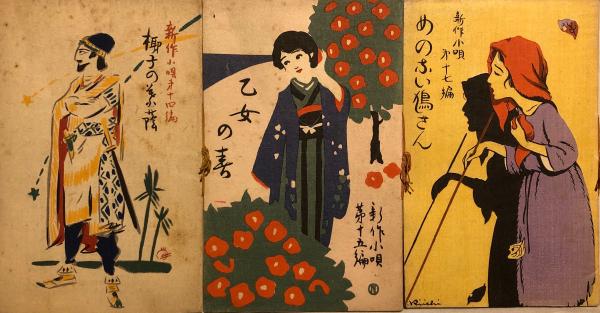 新作小唄㐧十四編
椰子の葉蔭
乙女
の春
新作小唄
第十五編
新作小唄
㐧十七編
めのない鳩さん
Kiichi